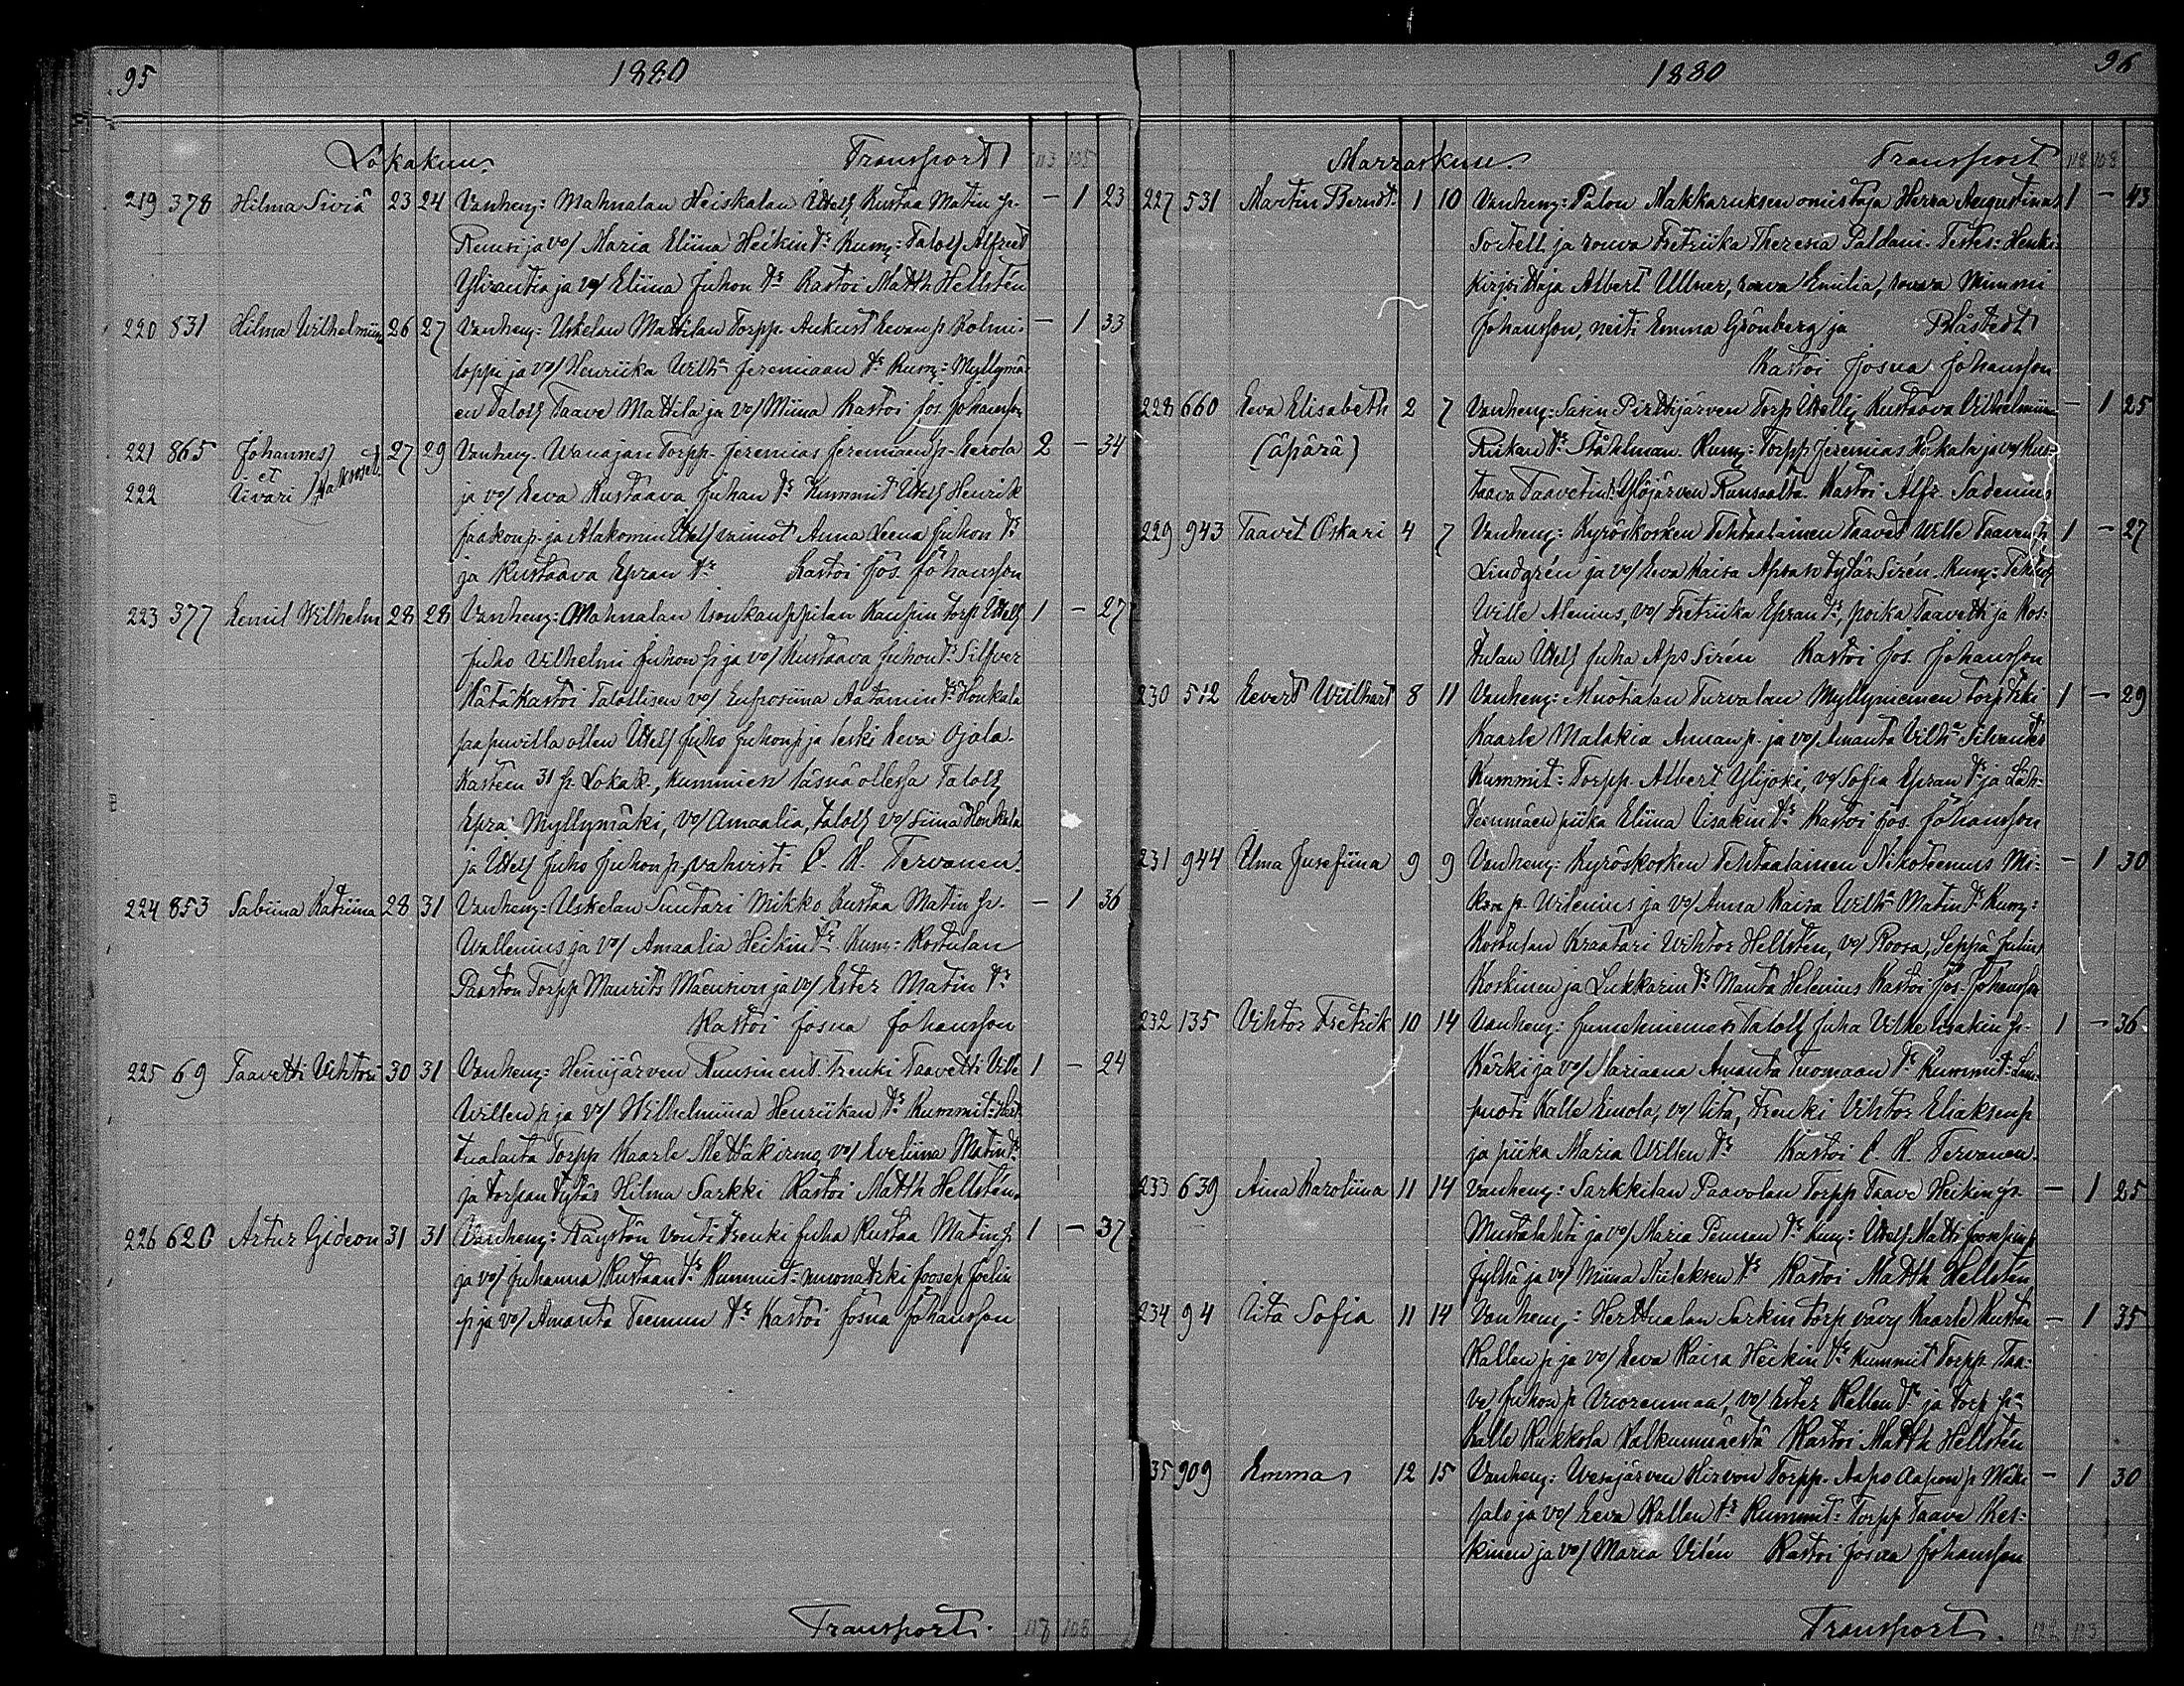 95 1880
Lokakuu. Transport 113 105
219 378 Hilma Siviä 23 24 Vanhem: Mahnalan Heiskalan Itsell Kustaa Matin p. — 1 23
Ruusi ja vo/ Maria Eliina Heikin tr Kum: Taloll Alfred
Ylirantia ja vo/ Eliina Juhon tr Kastoi Matth Hellstén
220 831 Hilma Wilhelmiina 26 27 Vanhem: Uskelan Mattilan Torpp. Aukust Eevan p Kolmi- — 1 33
loppi ja vo/ Henriika Wilha Jeremiaan tr Kum: Myllymä-
en Taloll Taave Mattila ja vo/ Miina Kastoi Jos. Johansson
221 865 Johannes 27 29 Vanhem. Wanajan Torpp. Jeremias Jeremiaan p. Eerola 2 — 34
et
222 Iivari /Kaksoset. ja vo/ Eeva Kustaava Juhan tr Kummit Itsell Henrik
Jaakon p. ja Alakomin Itsell vaimot Anna Leena Juhon tr
ja Kustaava Epran tr Kastoi Jos. Johansson
223 377 Eemil Wilhelm 28 28 Vanhem: Mahnalan Isonkauppilan Kaupin torp Itsell 1 — 27
Juho Vilhelmi Juhon p ja vo/ Kustaava Juhon tr Silfver
Hätäkastoi Talollisen vo/ Eufrosiina Aatamin tr Honkala
saapuvilla ollen Itsell Juho Juhon p ja leski Eeva Ojala.
Kasteen 31 p. Lokak., kummien läsnä ollessa Taloll
Epra Myllymäki, vo/ Amaalia, taloll vo/ Siina Honkala
ja Itsell Juho Juhon p, vahvisti C. H. Tervanen.
224 853 Sabiina Katriina 28 31 Vanhem: Uskelan Suutari Mikko Kustaa Matin p. — 1 36
Wallenius ja vo/ Amaalia Heikin tr Kum: Kostulan
Paaston Torpp Maurits Mäensivu ja vo/ Ester Matin tr
Kastoi Josua Johansson
225 69 Taavetti Vihtori 30 31 Vanhem: Heinijärven Ruusin ent. trenki Taavetti Ville 1 — 24
Willen p ja vo/ Wilhelmiina Henriikan tr Kummit: Hert-
tualasta Torpp Kaarle Mettäkirmo, vo/ Eveliina Matin tr
ja torpan tytär Hilma Sarkki Kastoi Matth Hellstén.
226 620 Artur Gideon 31 31 Vanhem: Räystön vouti trenki Juha Kustaa Matin p 1 — 37
ja vo/ Juhanna Kustaan tr Kummit: muonatrki Joosep Joelin
p ja vo/ Amanta Teemun tr Kastoi Josua Johansson
Transport. 118 108
1880 96
Marraskuu Transport 118 108
227 531 Martin Berndt. 1 10 Vanhem: Palon Makkaruksen omistaja Herra Augustinus 1 — 43
Sortell ja rouva Fretriika Theresia Paldani. Testes: Henki-
kirjoittaja Albert Ullner, rouva Emilia, rouva Mimmi
Johansson, neiti Emma Grönberg ja Blåstedt
Kastoi Josua Johansson
228 660 Eeva Elisabeth 2 7 Vanhem: Sasin Pirttijärven Torp Itsellj Kustaava Vilhelmiina — 1 25
(äpärä) Riikan tr Ståhlman. Kum: Torpp Jeremias Hokkala ja vo/ Kus-
taava Taavetin tr Ylöjärven Runsaalta. Kastoi Alfr. Sadenius
229 943 Taavet Oskari 4 7 Vanhem: Kyröskosken Tehtaalainen Taavet Wille Taavetin p 1 — 27
Lindgrén ja vo/ Eeva Kaisa Apran tytär Sirén. Kum: Teht.
Wille Alenius, vo/ Fretriika Epran tr, poika Taavetti ja Kos-
tulan Itsell Juha Aps Sirén Kastoi Jos. Johansson
230 512 Eevert Wilhart 8 11 Vanhem: Muotialan Turvalan Myllyniemen torp trki 1 — 29
Kaarle Malakia Annan p. ja vo/ Amanta Vilha Silvante tr
Kummit: Torpp. Albert Ylijoki, vo/ Sofia Epran tr ja Läh-
teenmäen piika Eliina Iisakin tr Kastoi Jos. Johansson
231 944 Elma Jusefiina 9 9 Vanhem: Kyröskosken Tehtaalainen Nikoteemus Mi- — 1 30
kon p Wilenius ja vo/ Anna Kaisa Wilha Matin tr Kum:
Kostulan Kraatari Wihtor Hellsten, vo/ Roosa, Seppä Julius
Koskinen ja Lukkarin tr Manta Helenius Kastoi Jos. Johansson
232 135 Vihtor Fretrik 10 14 Vanhem: Jumesniemen Taloll Juha Ville Iisakin p. 1 — 36
Kärki ja vo/ Mariaana Amanta Tuomaan tr Kummit: Lam-
puoti Kalle Einola, vo/ Iita, trenki Vihtor Eliaksen p
ja piika Maria Willen tr Kastoi C. H. Tervanen.
233 639 Aina Karoliina 11 14 Vanhem: Sarkkilan Paavolan Torpp Taave Heikin p. — 1 25
Mustalahti ja vo/ Maria Pennan tr Kum: Itsell Matti Joosepin p
Jylhä ja vo/ Miina Niileksen tr Kastoi Matth Hellstén
234 94 Iita Sofia 11 14 Vanhem: Herttualan Sarkin torp vävy Kaarle Kustaa — 1 35
Kallen p ja vo/ Eeva Kaisa Heikin tr Kummit Torpp Taa-
ve Juhon p Vuorenmaa, vo/ Ester Kallen tr ja torp pa
Kalle Kukkola Kalkunmäestä Kastoi Matth Hellstén
235 909 Emma 12 15 Vanhem: Vesajärven Hirvon Torpp. Aapo Aapon p Mäki — 1 30
salo ja vo/ Eeva Kallen tr Kummit: Torpp Taave Kes-
kinen ja vo/ Maria Vilén Kastoi Josua Johansson
Transport. 122 113